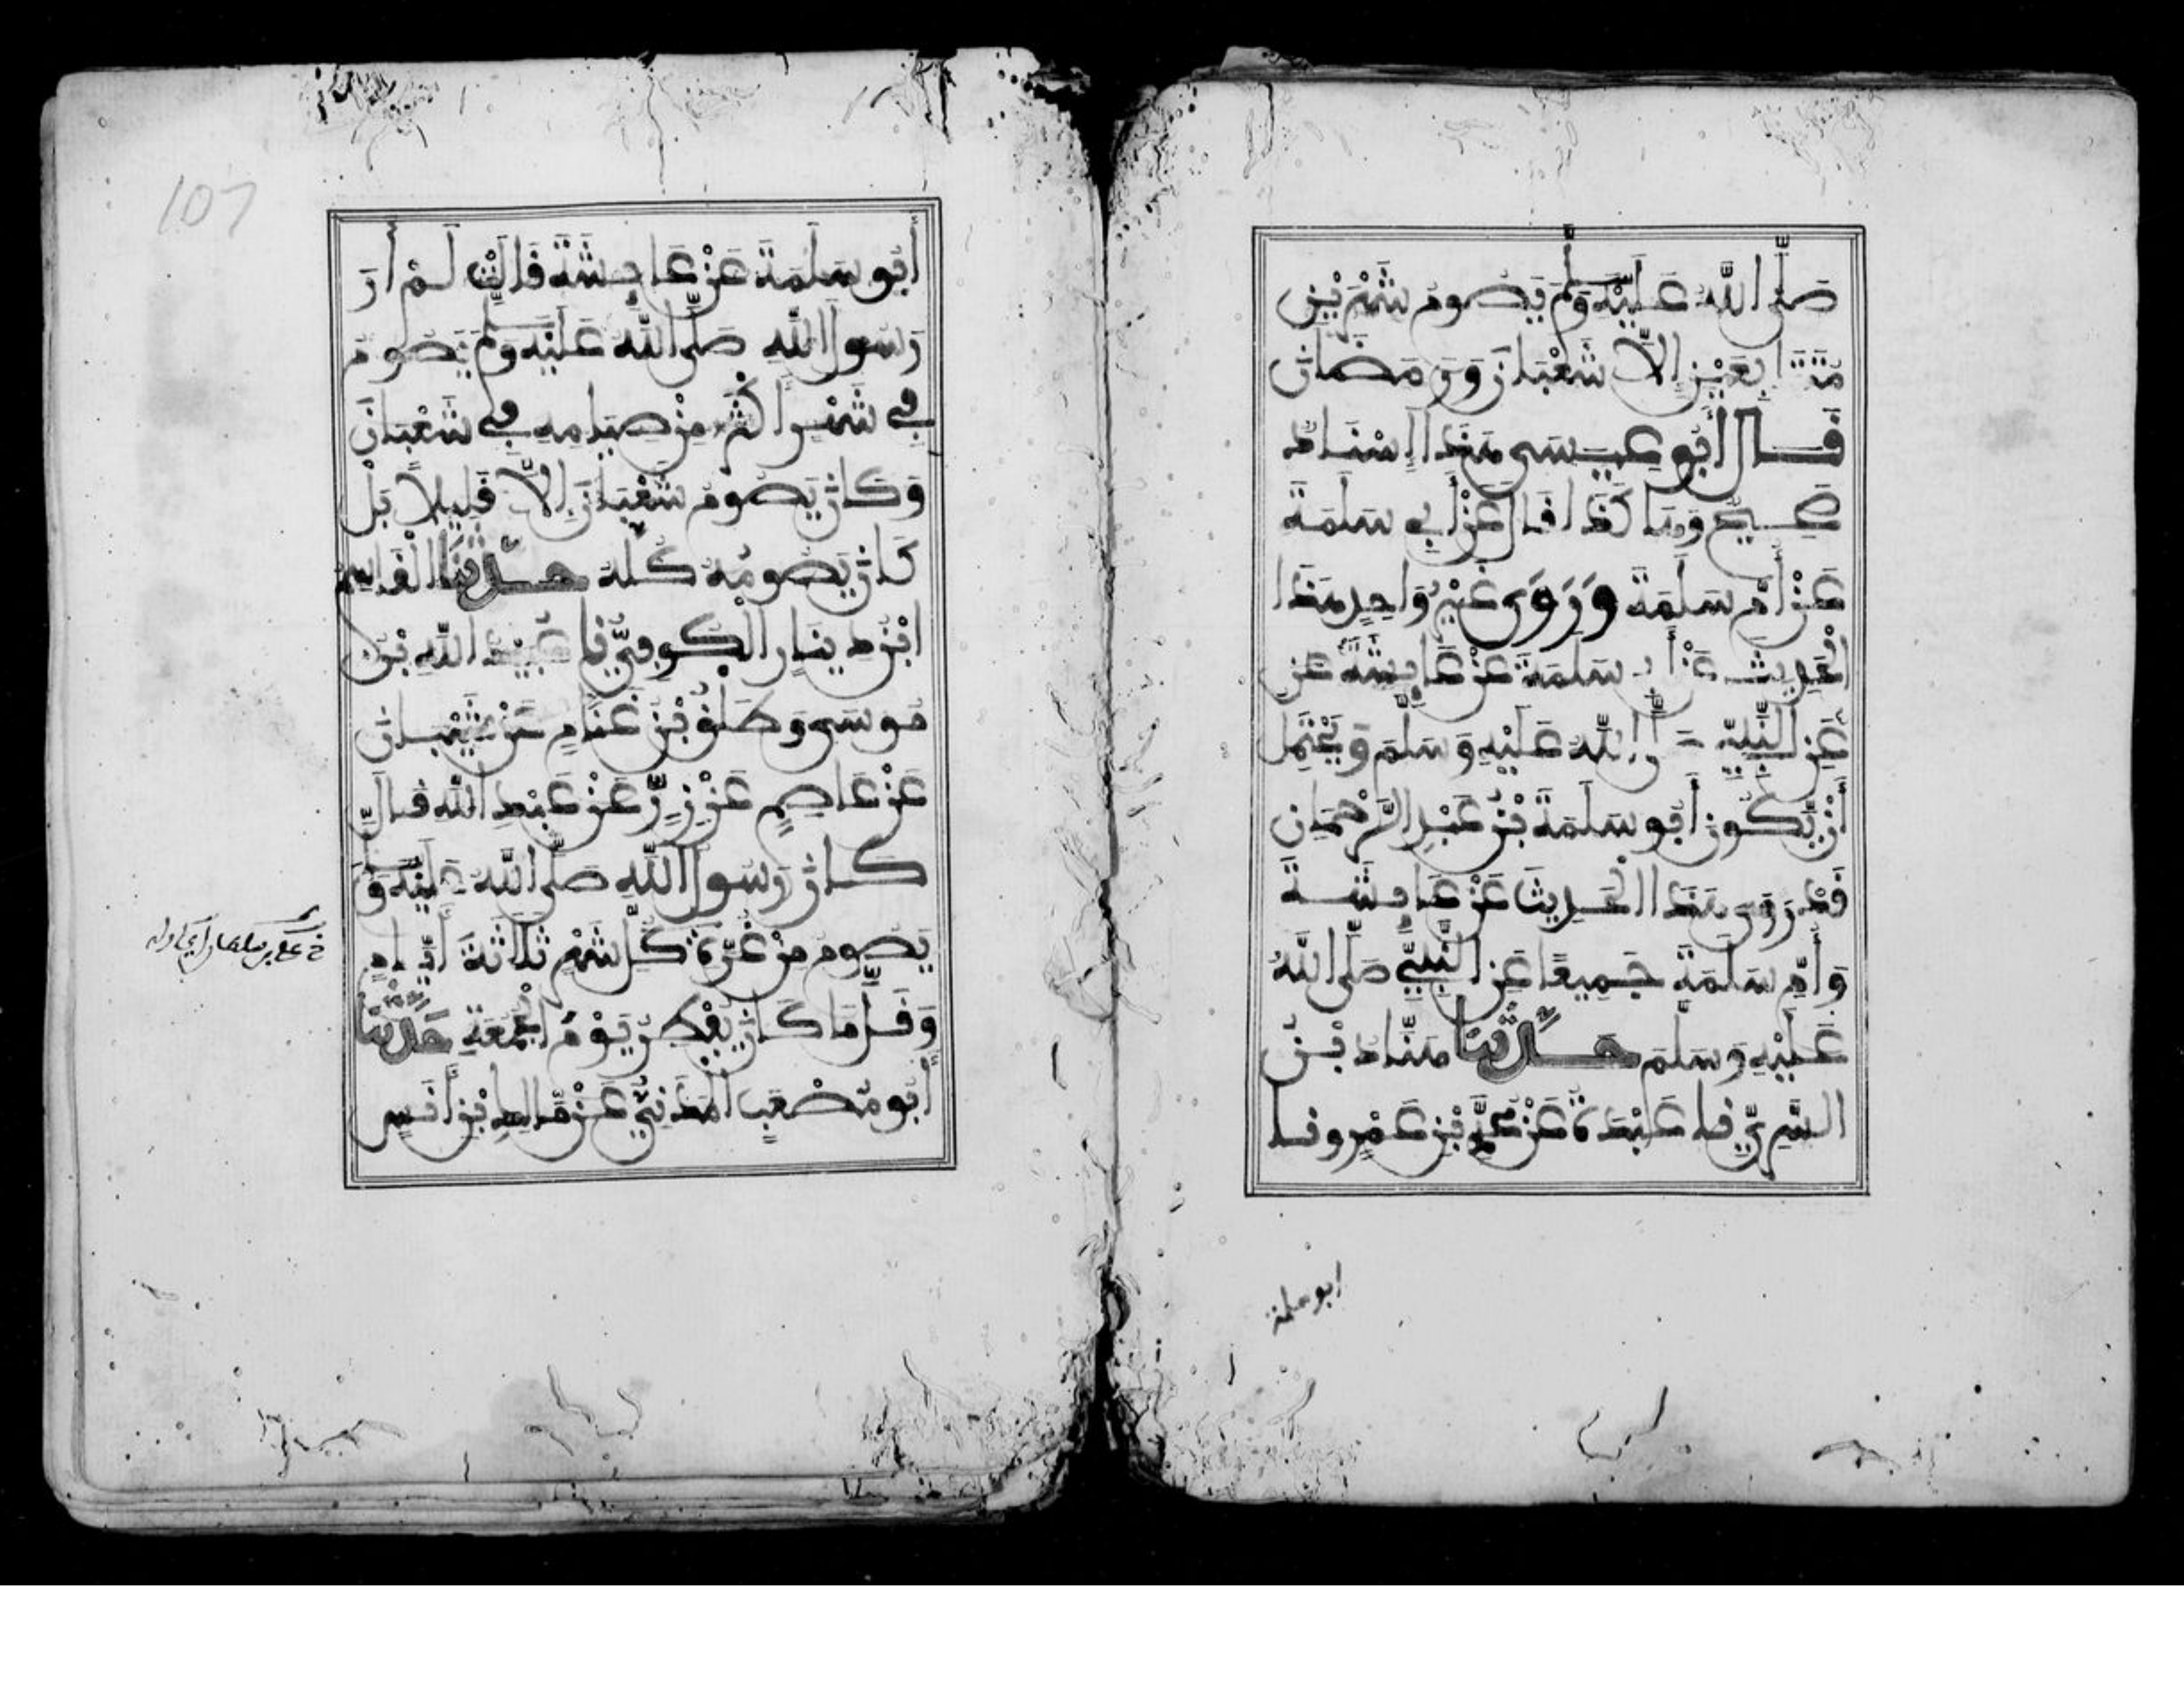 صَلَّى اللَّهُ عَلَيْهِ وَسَلَّمَ يَصُومُ شَهْرَيْنِ
مُتَتَابِعَيْنِ إِلَّا شَعْبَانَ وَرَمَضَانَ
قَالَ أَبُو عِيسَى هَذَا إِسْنَادٌ
صَحِيحٌ وَهَاكَذَا قَالَ عَنْ أَبِي سَلَمَةَ
عَنْ أُمِّ سَلَمَةَ وَرَوَى غَيْرُ وَاحِدٍ هَذَا
الْحَدِيثَ عَنْ أَبِي سَلَمَةَ عَنْ عَائِشَةَ عَنِ
عَنِ النَّبِيِّ صَلَّى اللَّهُ عَلَيْهِ وَسَلَّمَ وَيَحْتَمِلُ
أَنْ يَكُونَ أَبُو سَلَمَةَ بْنُ عَبْدِ الرَّحْمَانِ
قَدْ رَوَى هَذَا الْحَدِيثَ عَنْ عَائِشَةَ
وَأُمِّ سَلَمَةَ جَمِيعًا عَنِ النَّبِيِّ صَلَّى اللَّهُ
عَلَيْهِ وَسَلَّمَ حَدَّثَنَا هَنَّادُ بْنُ
السَّرِيِّ نا عَبْدَةُ عَنْ مُحَمَّدِ بْنِ عَمْرٍو نا
ابو سلمة
107
أَبُو سَلَمَةَ عَنْ عَائِشَةَ قَالَتْ لَمْ أَرَ
رَسُولَ اللَّهِ صَلَّى اللَّهُ عَلَيْهِ وَسَلَّمَ يَصُومُ
فِي شَهْرٍ أَكْثَرَ مِنْ صِيَامِهِ فِي شَعْبَانَ
وَكَانَ يَصُومُ شَعْبَانَ إِلَّا قَلِيلًا بَلْ
كَانَ يَصُومُهُ كُلَّهُ حَدَّثَنَا الْقَاسِمُ
ابْنُ دِينَارٍ الْكُوفِيُّ نا عُبَيْدُ اللَّهِ بْنُ
مُوسَى وَطَلْقُ بْنُ غَنَّامٍ عَنْ شَيْبَانَ
عَنْ عَاصِمٍ عَنْ زِرٍّ عَنْ عَبْدِ اللَّهِ قَالَ
كَانَ رَسُولُ اللَّهِ صَلَّى اللَّهُ عَلَيْهِ وَسَلَّمَ
يَصُومُ مِنْ غُرَّةِ كُلِّ شَهْرٍ ثَلَاثَةَ أَيَّامٍ
وَقَلَّ مَا كَانَ يُفْطِرُ يَوْمَ الْجُمُعَةِ حَدَّثَنَا
أَبُو مُصْعَبٍ الْمَدَنِيُّ عَنْ مَالِكِ بْنِ أَنَسٍ